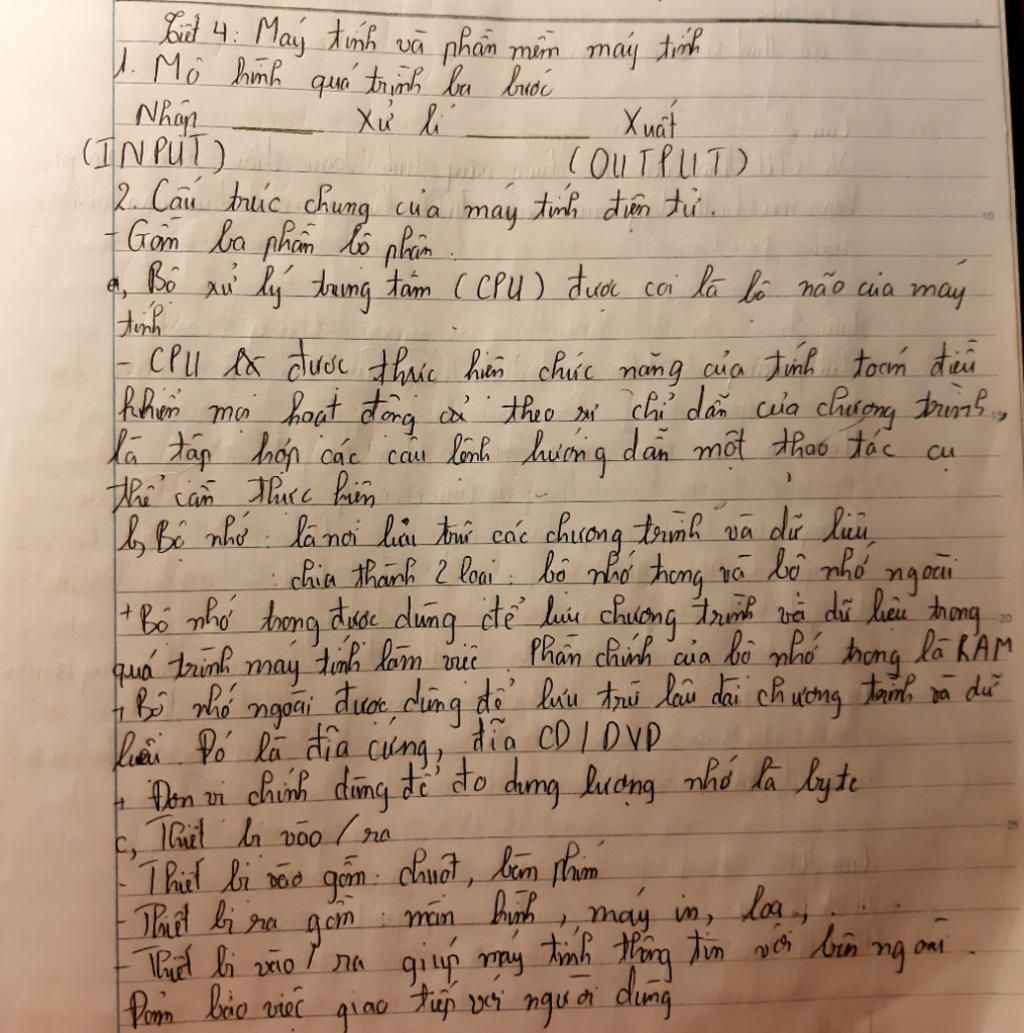 Tiết 4: Máy tính và phần mềm máy tính
1. Mô hình quá trình ba bước
Nhập ______ Xử lí ______ Xuất
(INPUT) (OUTPUT)
2. Cấu trúc chung của máy tính điện tử.
- Gồm ba phần bộ phận.
a, Bộ xử lý trung tâm (CPU) được coi là bộ não của máy
tính
- CPU được thực hiện chức năng của tính toán điều
khiển mọi hoạt động theo sự chỉ dẫn của chương trình,
là tập hợp các câu lệnh hướng dẫn một thao tác cụ
thể cần thực hiện
b, Bộ nhớ: là nơi lưu trữ các chương trình và dữ liệu
: chia thành 2 loại: bộ nhớ trong và bộ nhớ ngoài
+ Bộ nhớ trong được dùng để lưu chương trình và dữ liệu trong
quá trình máy tính làm việc. Phần chính của bộ nhớ trong là RAM
+ Bộ nhớ ngoài được dùng để lưu trữ lâu dài chương trình và dữ
liệu. Đó là đĩa cứng, đĩa CD/DVD
+ Đơn vị chính dùng để đo dung lượng nhớ là byte
c, Thiết bị vào/ra
- Thiết bị vào gồm: chuột, bàn phím
- Thiết bị ra gồm: màn hình, máy in, loa, ....
- Thiết bị vào/ra giúp máy tính thông tin với bên ngoài.
Đảm bảo việc giao tiếp với người dùng